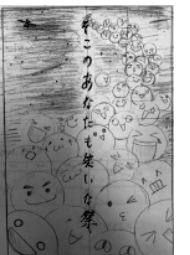 そこのあなたも笑いな祭